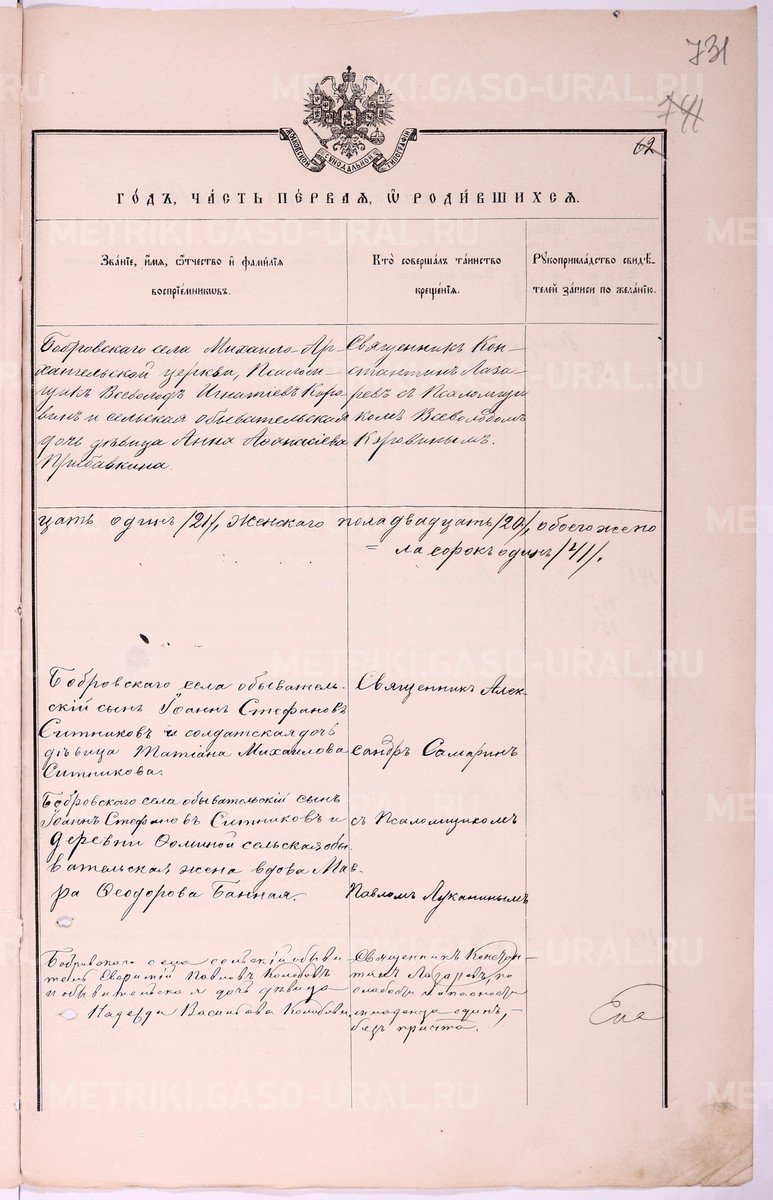 731
741
62
МОСКОВСКОЙ СѴНОДАЛЬНОЙ ТИПОГРАФІИ
ГОДЪ, ЧАСТЬ ПЕРВАЯ, Ѡ РОДИВШИХСЯ.
Званіе, имя, отчество и фамилія
воспріемниковъ.
Кто совершалъ таинство
крещенія.
Рукоприкладство свидѣ-
телей записи по желанію.
Бобровскаго села Михаило-Ар-
хангельской церкви, Псалом-
щикъ Всеволодъ Игнатіевъ Коро-
винъ и сельская обывательская
дочь дѣвица Анна Аѳанасіева
Прибавкина.
Священникъ Кон-
стантинъ Лаза-
ревъ съ Псаломщи-
комъ Всеволодомъ
Коровинымъ.
цать одинъ /21/, женскаго пола двадцать /20/, обоего же по
= ла сорокъ одинъ /41/.
Бобровскаго села обыватель-
скій сынъ Іоаннъ Стефановъ
Ситниковъ и солдатская дочь
дѣвица Татіана Михаилова
Ситникова.
Священникъ Алек-
сандръ Самаринъ
Бобровскаго села обывательскій сынъ
Іоаннъ Стефановъ Ситниковъ и
деревни Ѳоминой сельская обы-
вательская жена вдова Мав-
ра Ѳеодорова Банная.
съ Псаломщикомъ
Павломъ Луканинымъ
Бобровскаго села сельскій обыва
тель Павловъ Колобовъ
и обывательская дочь дѣвица
Надежда Васильева Колобова
Священникъ Констан-
тинъ Лазаревъ, по
слабости и опасности
младенца одинъ,-
безъ причта.